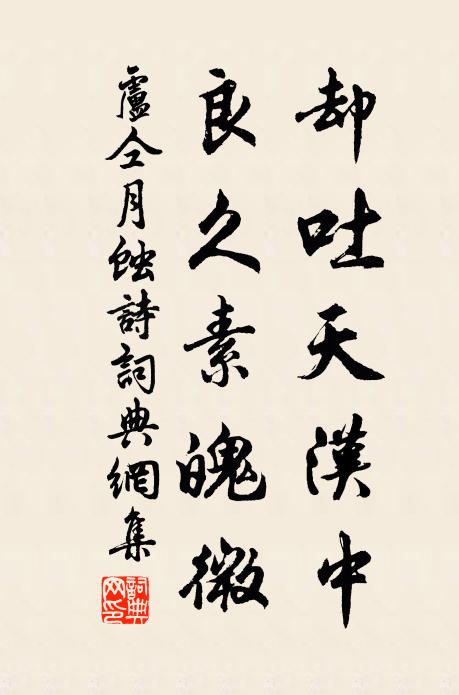 却吐天漢中
良久素魄微
盧仝月蝕詩詞典網集
詞典网印